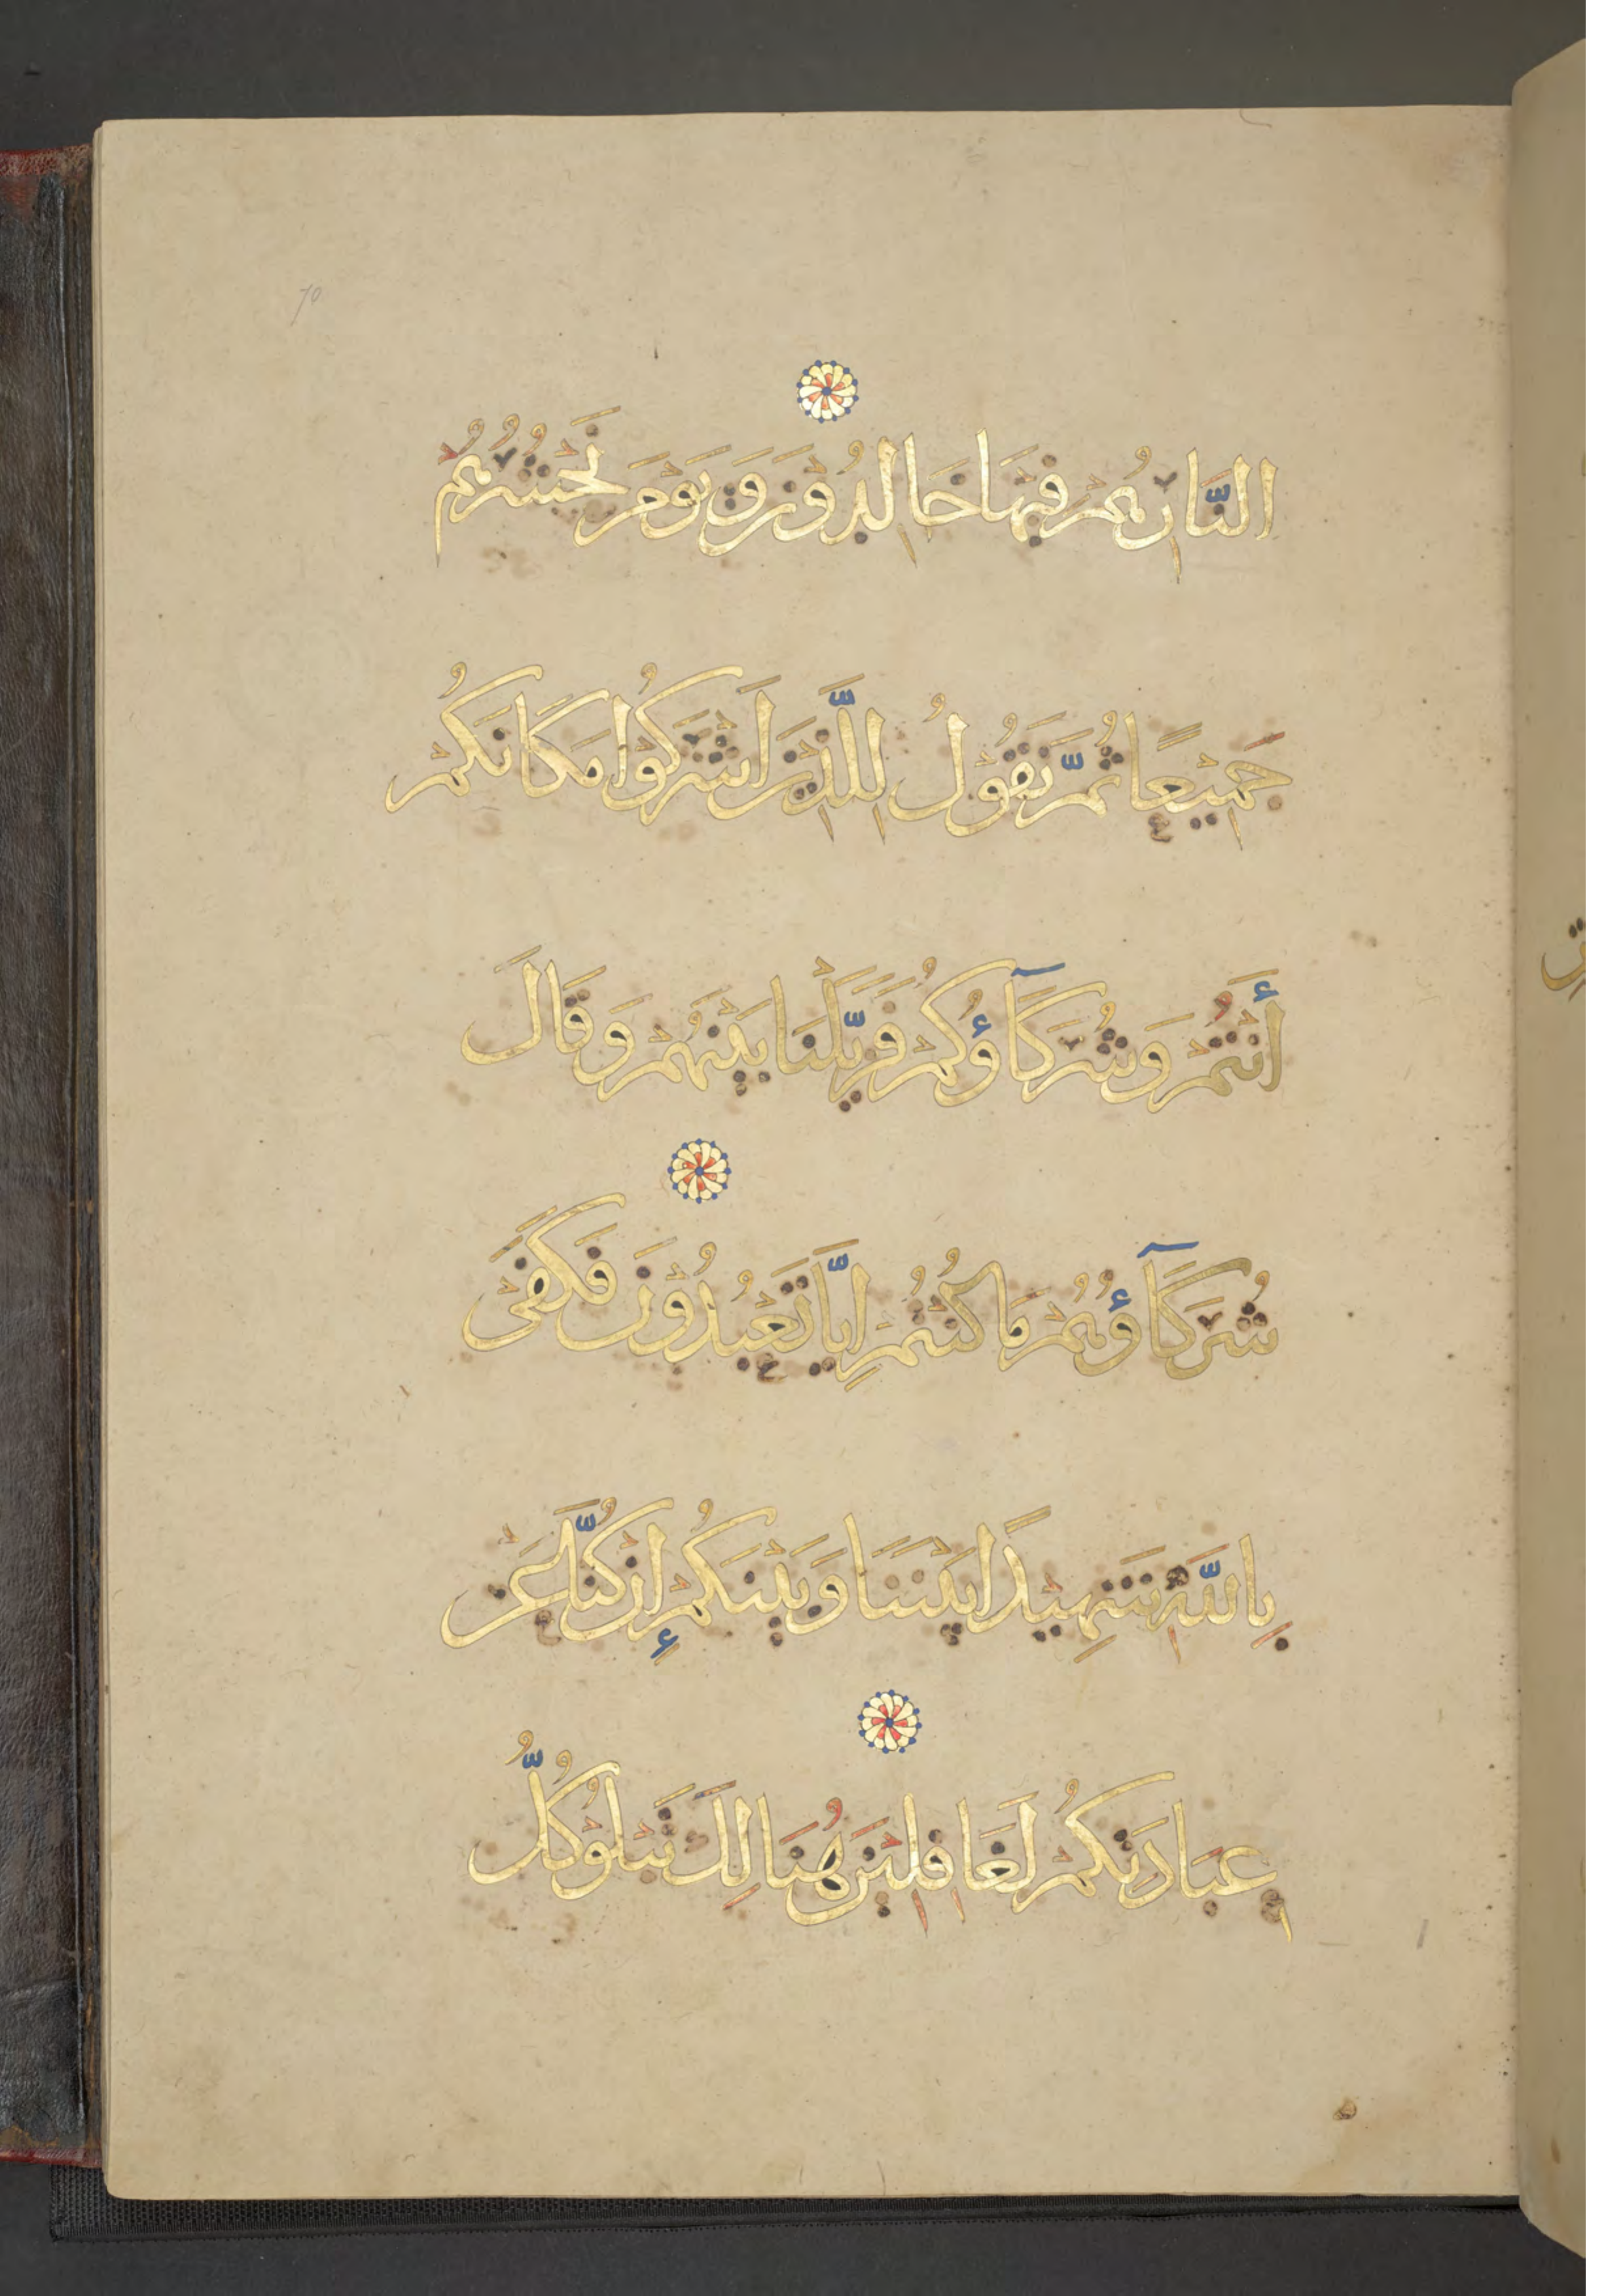 70
النَّارِ هُمْ فِيهَا خَالِدُوْنَ وَيَوْمَ نَحْشُرُهُمْ
جَمِيْعًا ثُمَّ نَقُوْلُ لِلَّذِيْنَ اَشْرَكُوْا مَكَانَكُمْ
أَنْتُمْ وَشُرَكَآؤُكُمْ فَزَيَّلْنَا بَيْنَهُمْ وَقَالَ
شُرَكَآؤُهُمْ مَا كُنْتُمْ اِيَّانَا تَعْبُدُوْنَ فَكَفَى
بِاللّٰهِ شَهِيْدًا بَيْنَنَا وَبَيْنَكُمْ إِنْ كُنَّا عَنْ
عِبَادَتِكُمْ لَغَافِلِيْنَ هُنَالِكَ تَبْلُوْ كُلُّ